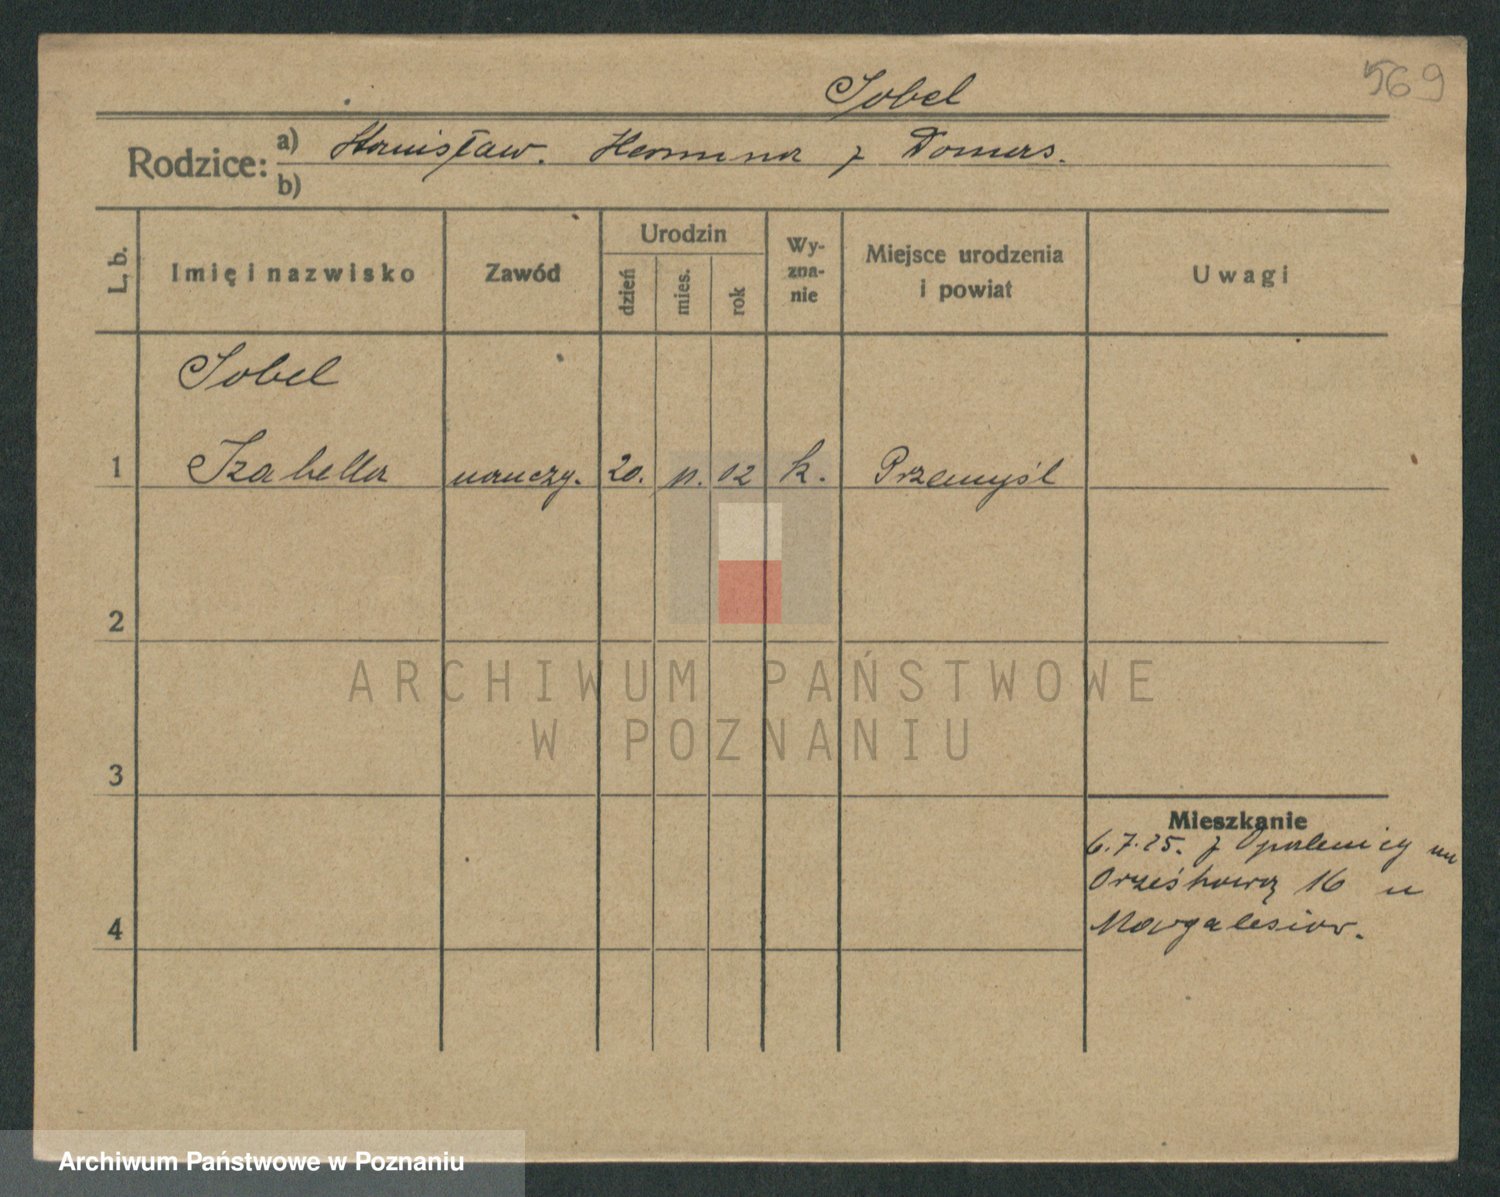 569
Sobel
Rodzice: a) Stanisław. Hermina z Domers.
b)
L. b. Imię i nazwisko Zawód Urodzin dzień mies. rok Wy-zna-nie Miejsce urodzenia i powiat Uwagi
Sobel
1 Izabella nauczy. 20. 11. 02 k. Przemyśl
2
ARCHIWUM PAŃSTWOWE
W POZNANIU
3
Mieszkanie
6.7.25. z Opalenicy na
16 u
4
Archiwum Państwowe w Poznaniu